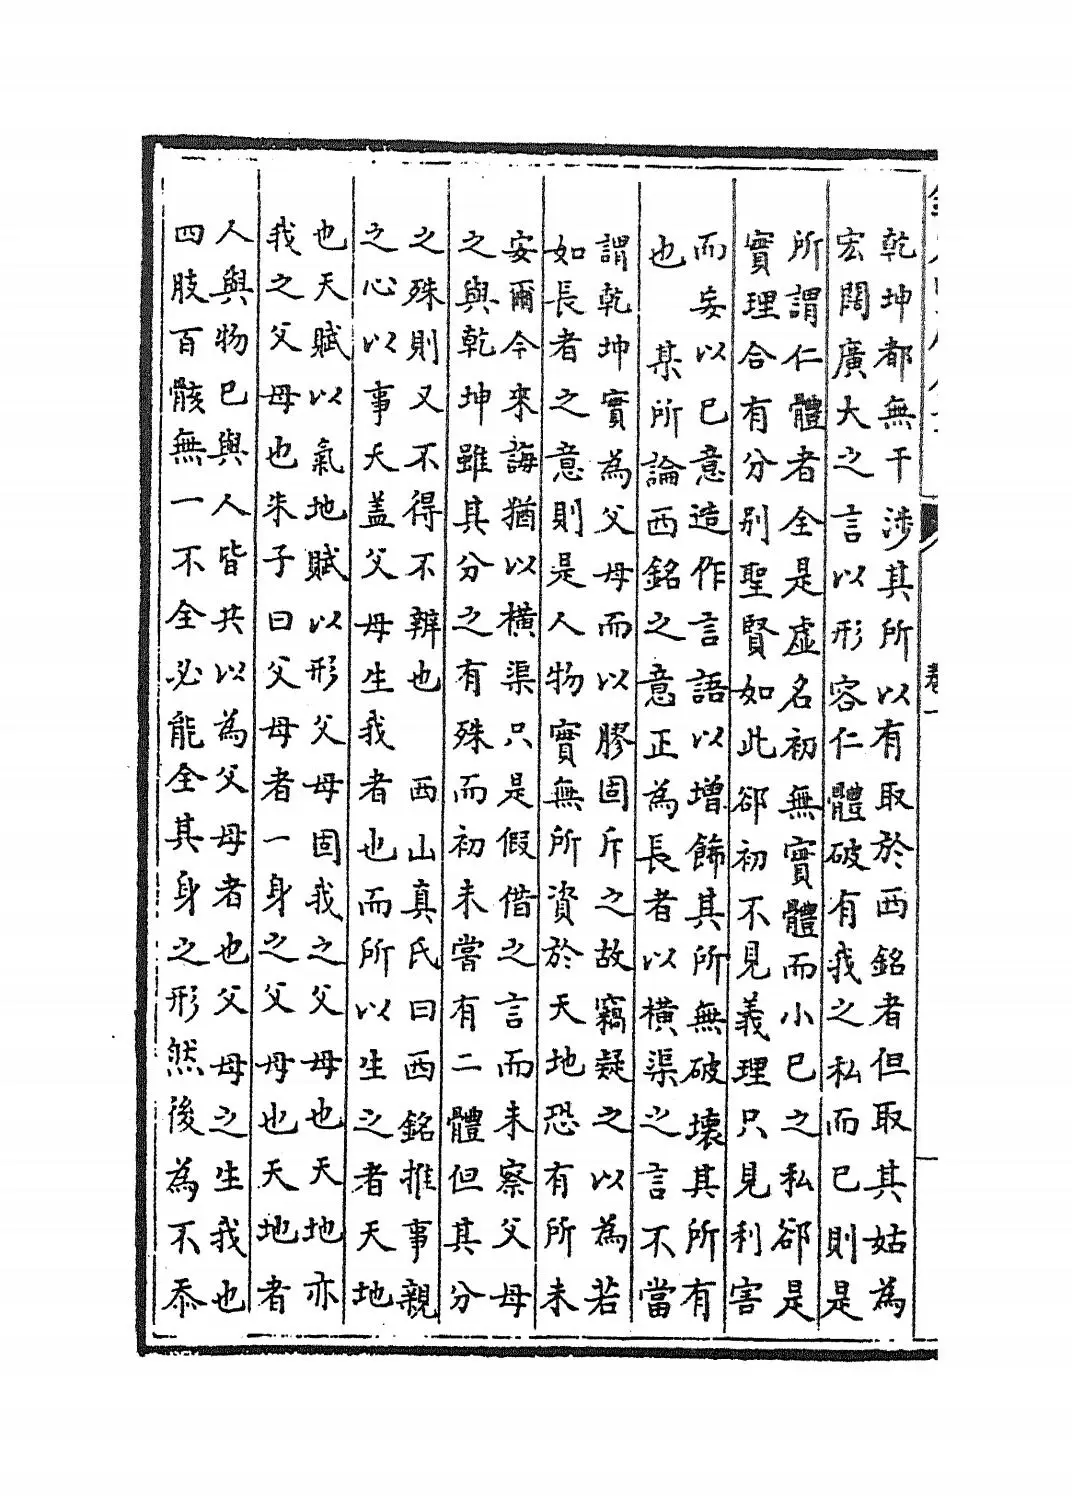 乾坤都無干涉其所以有取於西銘者但取其姑為
宏闊廣大之言以形容仁體破有我之私而已則是
所謂仁體者全是虛名初無實體而小已之私郤是
實理合有分别聖賢如此郤初不見義理只見利害
而妄以已意造作言語以增飾其所無破壞其所有
也 某所論西銘之意正為長者以橫渠之言不當
謂乾坤實為父母而以膠固斥之故竊疑之以為若
如長者之意則是人物實無所資於天地恐有所未
安爾今來誨猶以橫渠只是假借之言而未察父母
之與乾坤雖其分之有殊而初未嘗有二體但其分
之殊則又不得不辨也 西山真氏曰西銘推事親
之心以事天盖父母生我者也而所以生之者天地
也天賦以氣地賦以形父母固我之父母也天地亦
我之父母也朱子曰父母者一身之父母也天地者
人與物已與人皆共以為父母者也父母之生我也
四肢百骸無一不全必能全其身之形然後為不忝
卷一